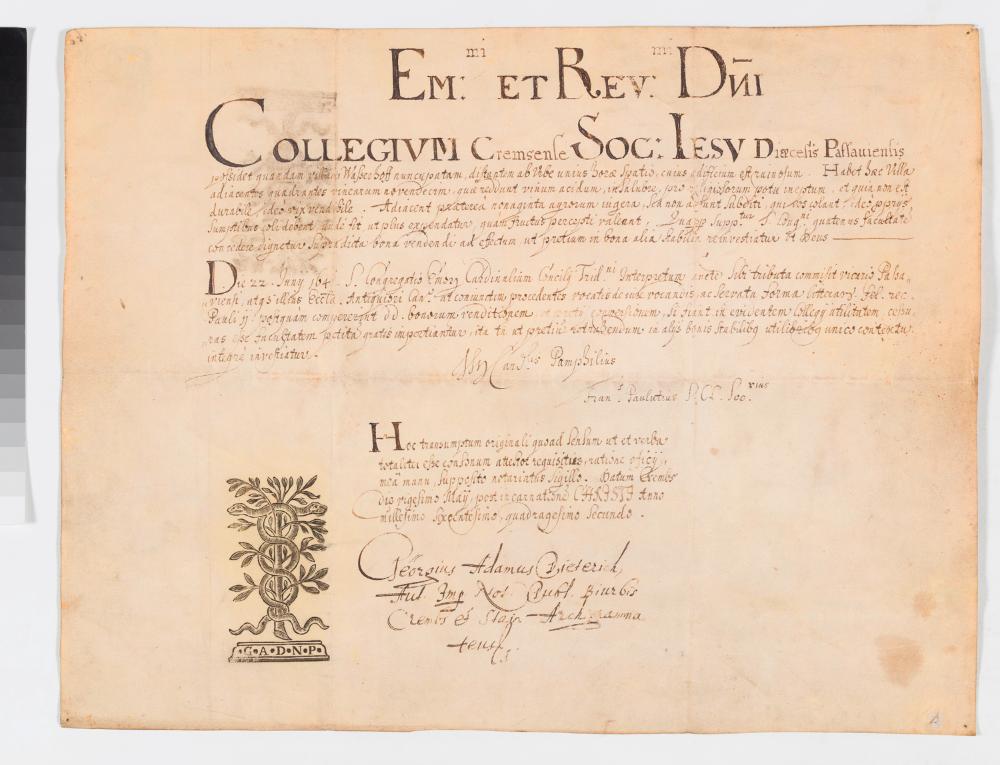 Em:mi et Rev:mi Dn̄i
Collegium Cremsense Soc: Iesv Diœcesis Passauiensis
possidet quandam villam Wasserhoff nuncupatam, distantem ab Vrbe unius horæ spatio, cuius ædificium est ruinosum. Habet hæc Villa
adiacentes quadrantes vinearum novendecim, quæ reddunt vinum acidum, insalubre, pro religiosorum potu ineptum, et quia non est
durabile, ideo vix vendibile. Adiacent prætereà nonaginta agrorum iugera, sed non adsunt subditi, qui eos colant, ideo pprys
sumptibus coli debent, unde fit ut plus expendatur, quàm fructus percepti valeant. Quapp supptur S. Congni quatenus facultatē
concedere dignetur supradicta bona vendendi ad effectum, ut pretium in bona alia stabilia reinvestiatur. Et Deus
Die 22. Iuny 164 S. Congregatio Cardinalium Concily Trid.ni Interpretum aucte Sibi tributa commisit vicario Pata„
„viensi, atqz illius Eccłæ Antiquiori Can.co ut coniunctim procedentes vocatis de iure vocandis, ac servata forma litterary. Fel. rec.
Pauli ij postquam compererint dd. bonorum venditionem, et pretii conversionem, si fiant in evidentem Collegy utilitatem, cessu„
„ras esse facultatem petitā gratis impertiantur, ita tn̄ ut pretiū retrahendum in alijs bonis stabilibqz utilioribqz unico contextu
integrè investiatur.
Cardlis Pamphilius
Fran.s Paulutius Secrius
Hoc transumptum originali quoad sensum ut et verba
totaliter esse consonum attestor requisitus, ratione officij,
meâ manu, supposito notariatus sigillo. Datum Crembs
die vigesimo Maij, post incarnationē CHRISTI Anno
millesimo sexcentesimo, quadragesimo secundo.
Geörgius Adamus Dieterich
Aut. Imp Not. Publ. Biurbis
Crembs et Stain Archigramma
teus
·G·A·D·N·P·